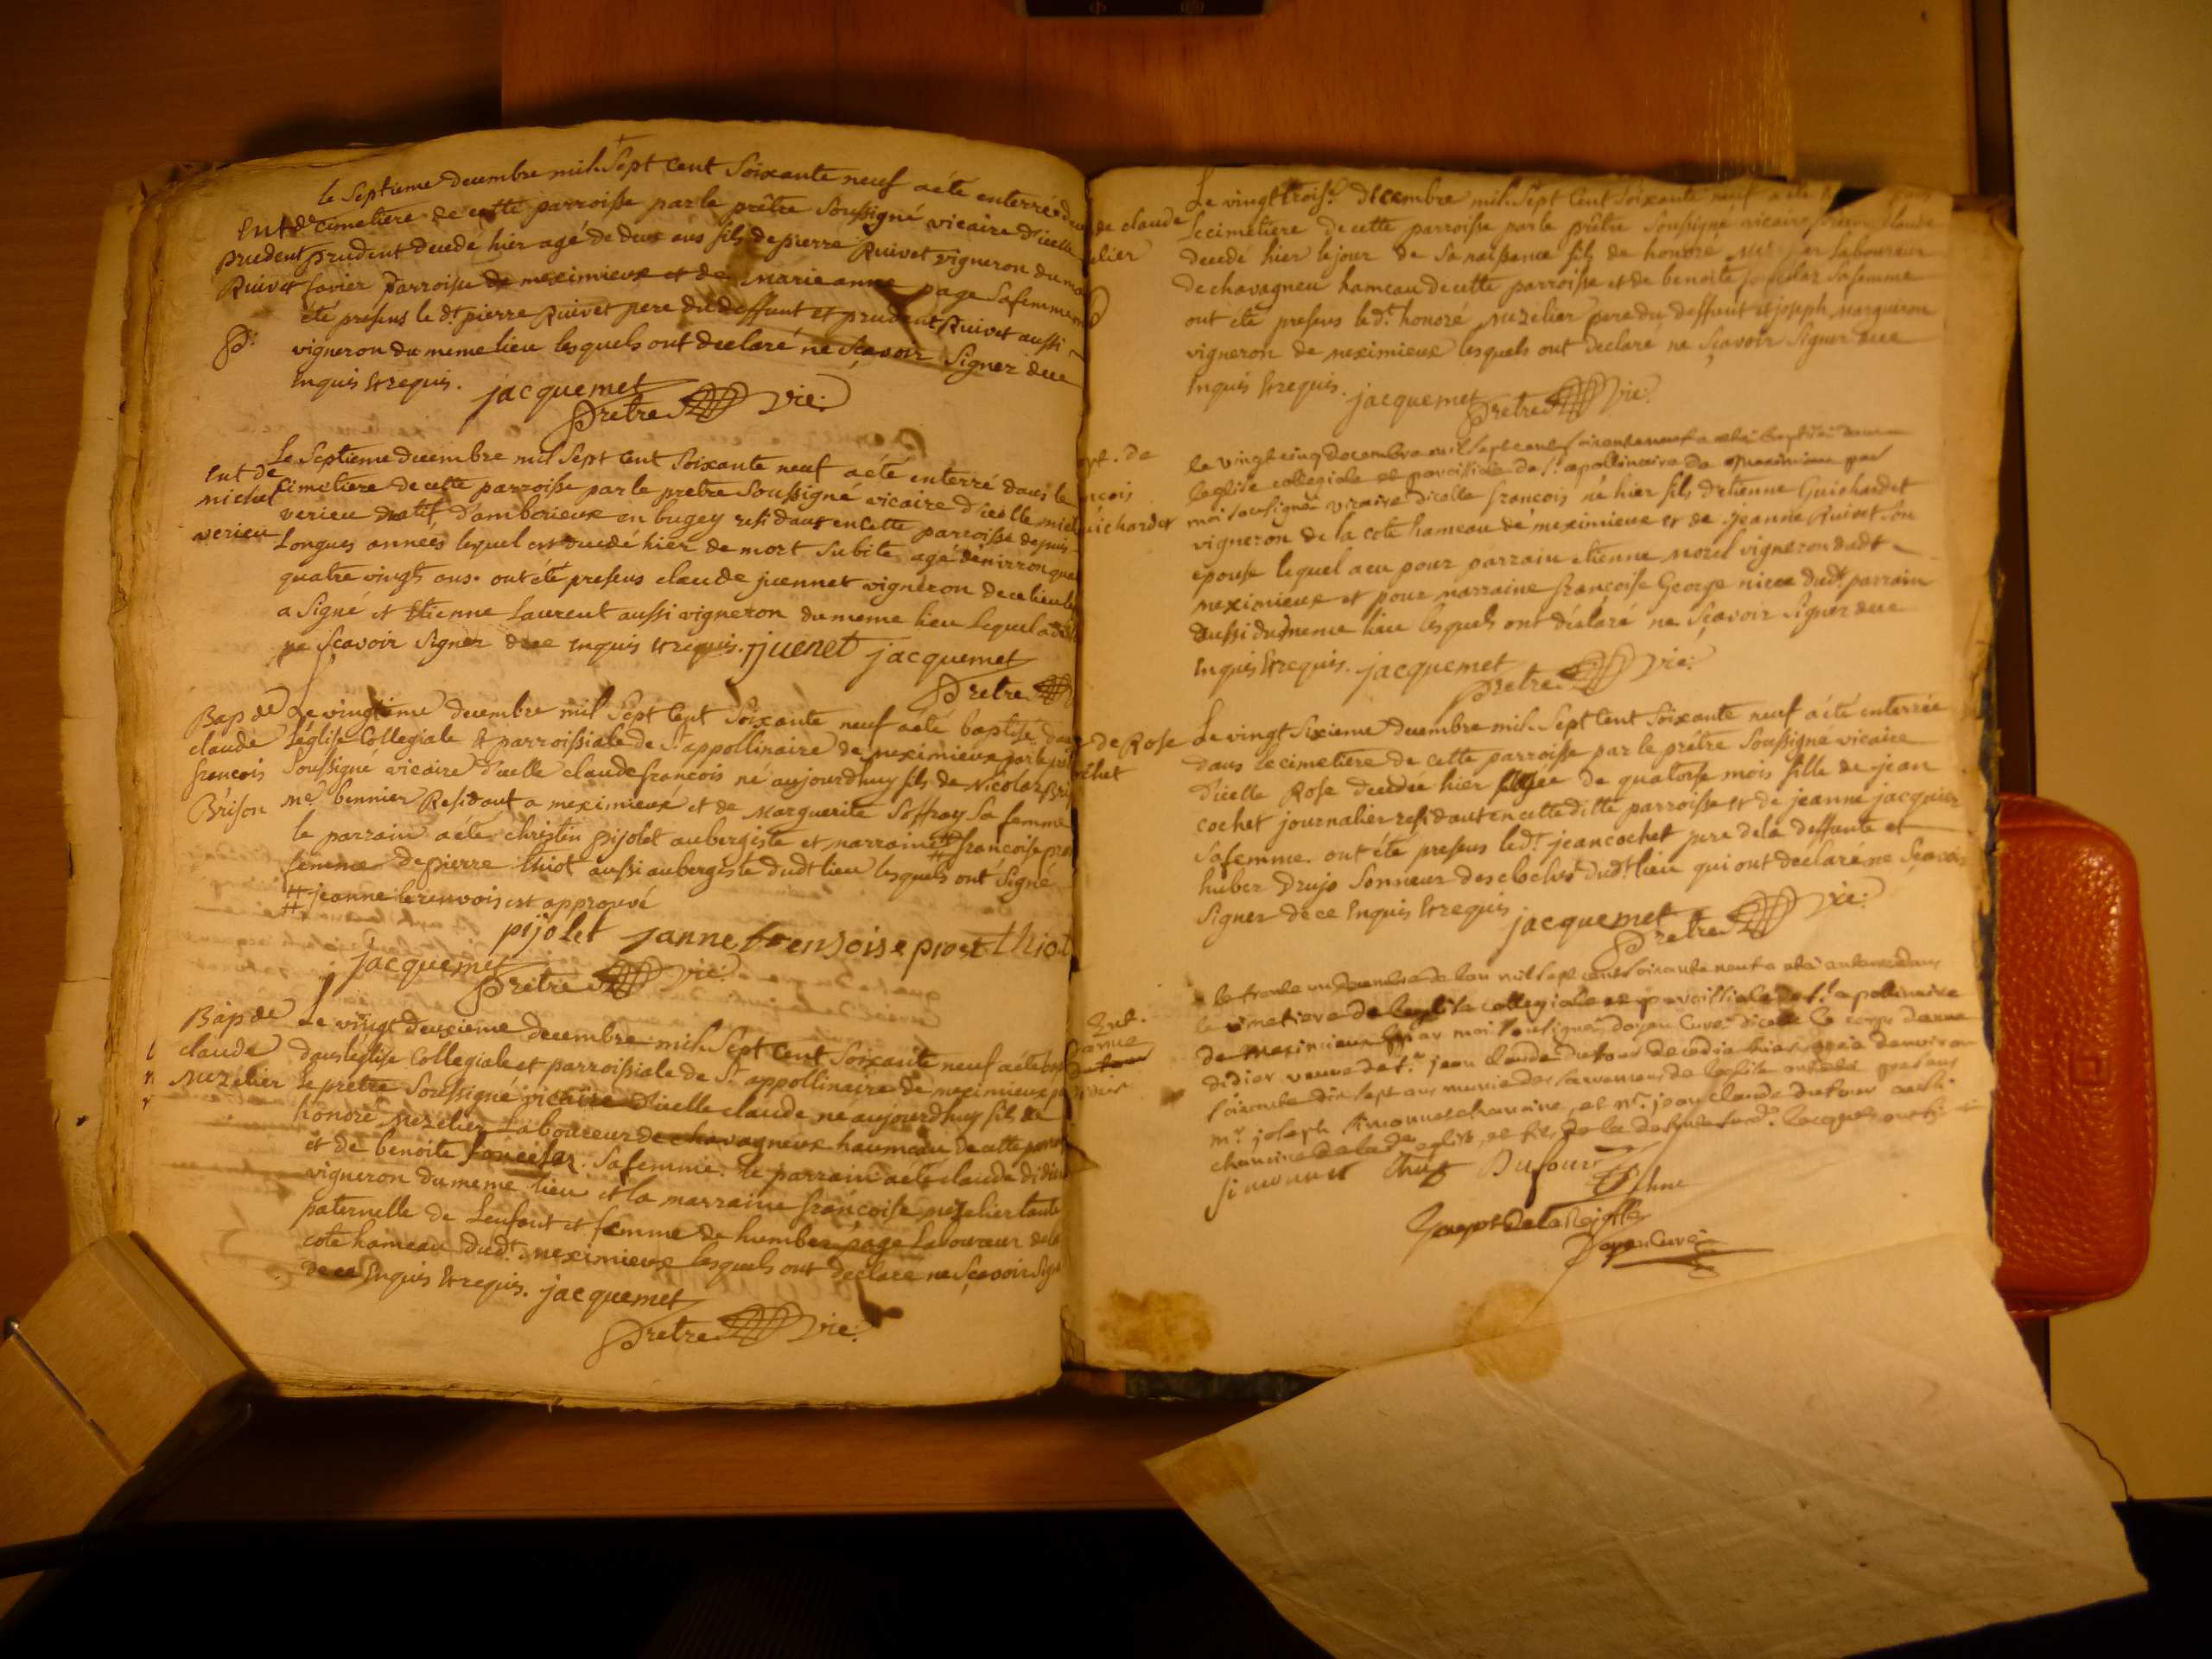 le Septieme decembre mil Sept Cent Soixante neuf a été enterré
Ent de cimetiere de cette parroisse par le prêtre Soussigné vicaire d'icelle
prudent prudent decedé hier agé de deux ans fils de pierre Ruivet vigneron du
Ruivet favier parroisse de meximieux et de Marieanne page Safemme
été presens le dt pierre Ruivet pere du deffunt et prudent Ruivet aussi
vigneron du meme lieu lesquels ont declaré ne Sçavoir Signer dece
Enquis Et requis. jacquemet
Pretre vic:
Le Septieme decembre mil Sept Cent Soixante neuf a été enterré dans le
Ent de
michel cimetiere de cette parroisse par le pretre Soussigné vicaire d'icelle
verieu verieu natif d'amberieux en bugey residant en cette parroisse depuis
Longues années lequel est decedé hier de mort Subite agé d'environ
quatre vingts ans. ont été presens claude juennet vigneron de ce lieu
a Signé et Etienne Laurent aussi vigneron du meme lieu Lequel a
ne Scavoir Signer dece enquis et requis. juenet jacquemet
Pretre
Bap de Le vingtieme decembre mil Sept Cent Soixante neuf a été baptisé
claude L'église Collegiale & parroissiale de St appollinaire de meximieux par le
françois Soussigné vicaire d'icelle claude françois né aujourdhuy fils de Nicolas
Brison me. bennier Residant a meximieux et de Marguerite Soffray Sa femme
le parrain a été christin pijolet aubergiste et marraine # françoise
femme de pierre thiot aussi aubergiste dudt lieu lesquels ont Signé
# jeanne le renvois est approuvé
pijolet janne frensoise prost thiot
jacquemet
Pretre vic:
Bap de Le vingt deuxieme decembre mil Sept Cent Soixante neuf a été
claude dans l'église Collegiale et parroissiale de St appollinaire de meximieux
Mezelier Le pretre Soussigné vicaire d'icelle claude ne aujourdhuy fils de
honoré Mezelier Laboureur de chavagneux haumeau de cette
et de benoite Safemme. le parrain a été claude didier
vigneron du meme lieu et la marraine françoise mezelier tante
paternelle de Lenfant et femme de humber page Laboureur de la
cote hameau dudt. meximieux lesquels ont declaré ne Sçavoir
de ce Enquis Et requis. jacquemet
Pretre vic:
Le vingt trois.e decembre mil Sept Cent Soixante neuf a été
de claude Le cimetiere de cette parroisse par le prêtre Soussigné vicaire claude
elier decedé hier le jour de Sa naissance fils de honoré Laboureur
de chavagneu hameau de cette parroisse et de benoite Safemme
ont été presens le dt. honoré Mezelier pere du deffunt et joseph marguiron
vigneron de meximieux lesquels ont declaré ne Sçavoir Signer dece
Enquis Et requis. jacquemet
Pretre vic:
de le vingt cinq decembre mil sept cent soixante neuf a eté baptisé dans
leglise collegiale et paroissiale de St. apollinaire de meximieux par
moi soussigné vicaire d'icelle francois né hier fils d'etienne Guichardet
uichardet vigneron de la cote hameau de meximieux et de jeanne Ruivet Son
epouse lequel a eu pour parrain etienne morel vigneron dudt
meximieux et pour marraine françoise George niece dudt. parrain
aussi du meme lieu lesquels ont déclaré ne Sçavoir Signer dece
Enquis Et requis. jacquemet
Pretre vic:
de Rose Le vingt Sixieme decembre mil Sept Cent Soixante neuf a été enterrée
chet dans le cimetiere de cette parroisse par le prêtre Soussigné vicaire
d'icelle Rose decedée hier agée de quatorse mois fille de jean
cochet journalier residant en cette ditte parroisse et de jeanne jacquier
Safemme. ont été presens le dt. jean cochet pere de la deffunte et
huber Drujo Sonneur des cloches dudt. lieu qui ont declaré ne Sçavoir
Signer de ce Enquis Et requis jacquemet
Pretre vic:
le trente un decembre de lan mil sept cent soixante neuf a eté enterré dans
Ent. le cimetiere de leglise collegiale et paroissiale de St. apollinaire
de meximieux par moi soussigné doyen curé dicelle le corps danne
didier veuve de Sr. jean claude dufour decedée hier agée denviron
soixante dix sept ans munie des sacremens de leglise ont eté presens
mr. joseph simonnet chanoine, et mr. jean claude dufour aussi
chanoine de la de eglise, et fils de la defunte
simonnet Dufour
Doyen Curé